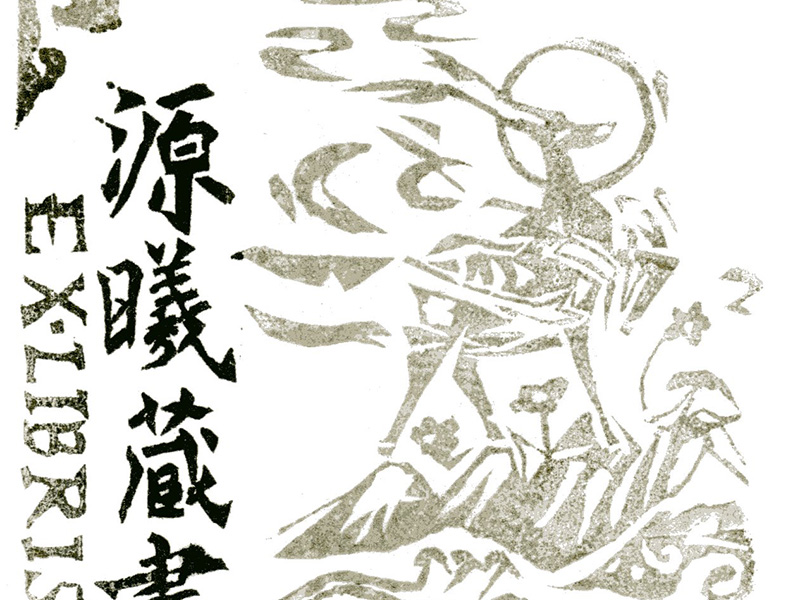 源曦蔵書
EX·LIBRIS